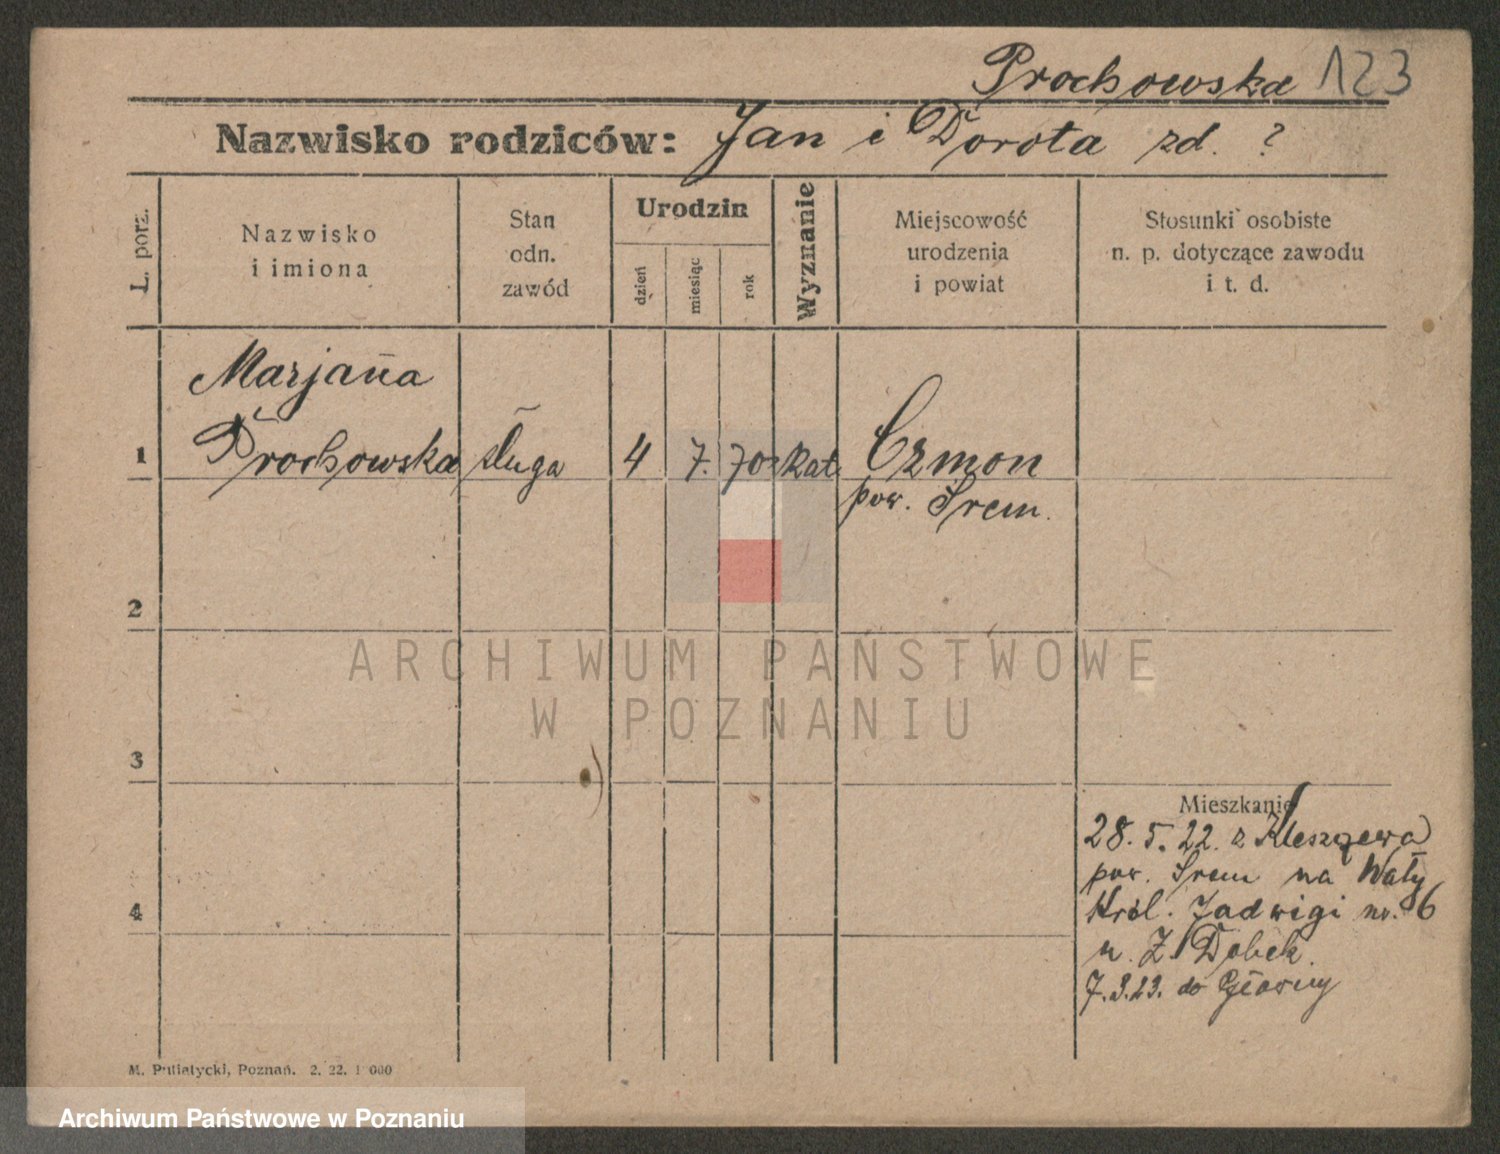 Prochowska 123
Nazwisko rodziców: Jan i Dorota zd. ?
L. porz.
Nazwisko
i imiona
Stan
odn.
zawód
Urodzin
dzień
miesiąc
rok
Wyznanie
Miejscowość
urodzenia
i powiat
Stosunki osobiste
n. p. dotyczące zawodu
i t. d.
Marjanna
1 Prochowska sługa 4 7. 70 rkat. Czmoń
pow. Śrem.
2
3
4
Mieszkanie
28. 5. 22. z Kleszczewa
pow. Śrem na Wały
Król. Jadwigi nr. 6
u. Z. Dobek.
7.3.23. do
M. Putiatycki, Poznań. 2. 22. 1 000
ARCHIWUM PAŃSTWOWE
W POZNANIU
Archiwum Państwowe w Poznaniu